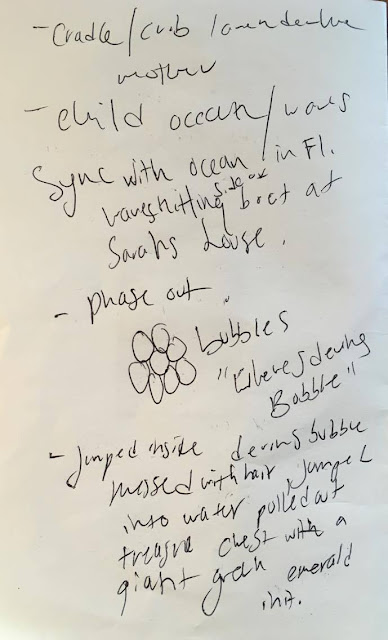 - Cradle / crib lavender
mother
- child ocean / waves
Sync with ocean / in Fl.
waves hitting side of
boat at
Sarahs house.
- phase out
bubbles
"Wheres
Bobble"
- Jumped inside bubble
messed with hair Jumped
into water pulled out
treasure chest with a
giant green emerald
in it.